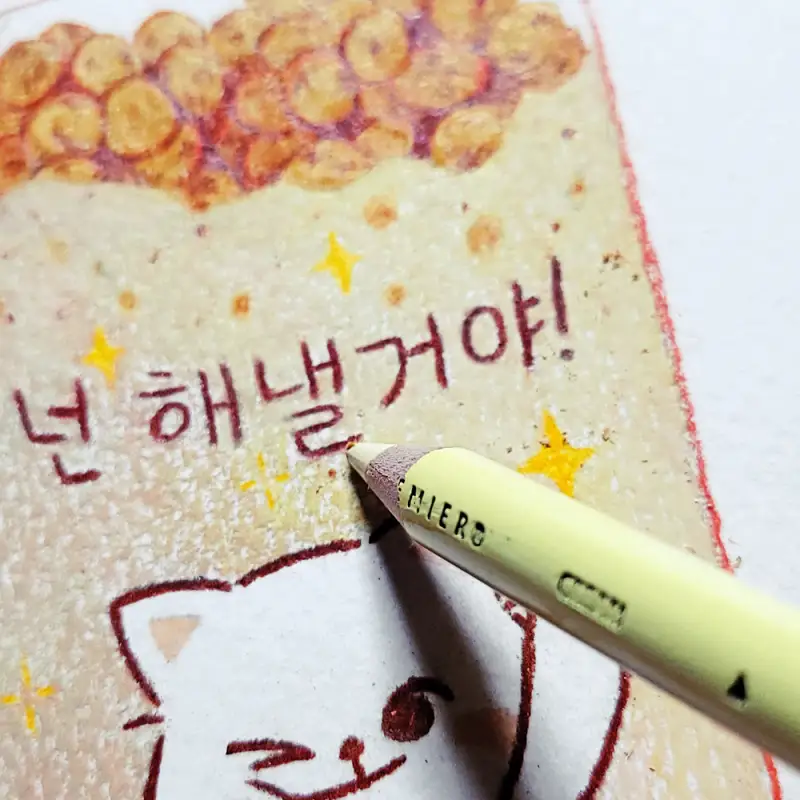 넌 해낼거야!
MIERO